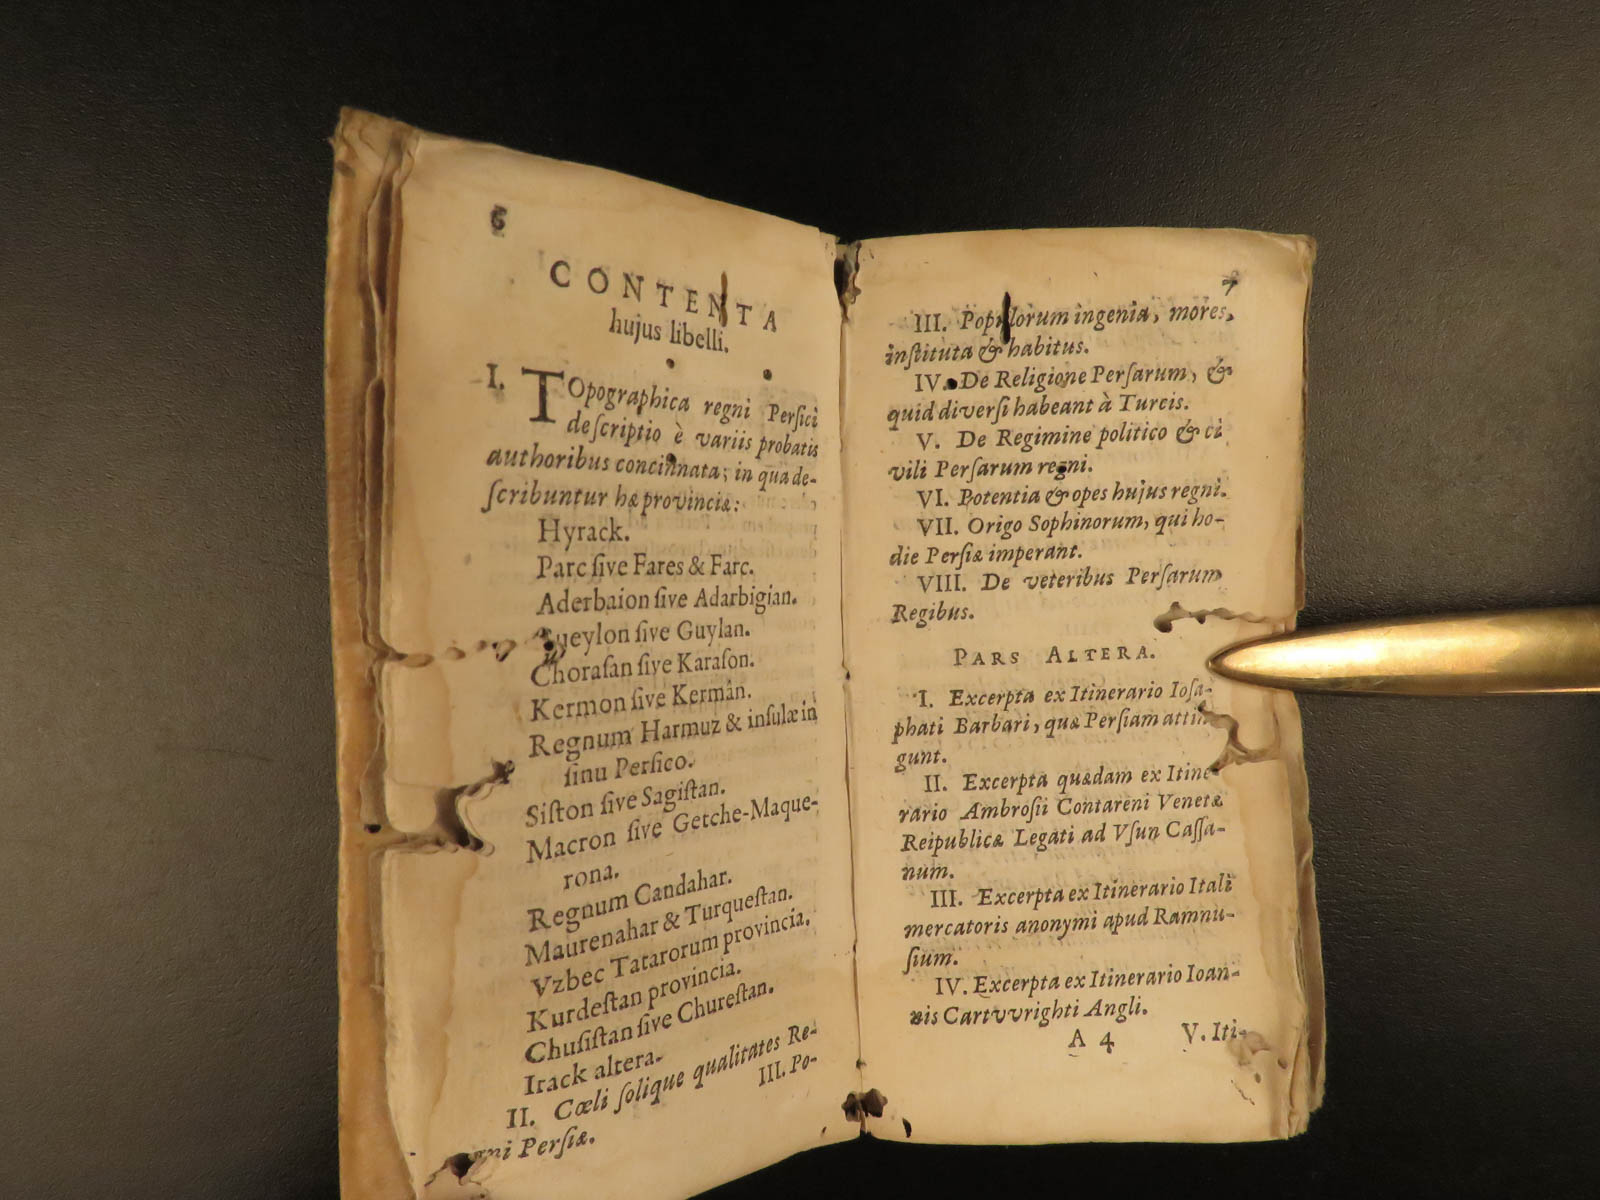 6
CONTENTA
hujus libelli.
I. TOpographica regni Persici
deſcriptio è variis probatis
authoribus concinnata; in qua de-
ſcribuntur hæ provinciæ:
Hyrack.
Parc ſive Fares & Farc.
Aderbaion ſive Adarbigian.
ſive Guylan.
Choraſan ſive Karaſon.
Kermon ſive Kermân.
Regnum Harmuz & inſulæ in
ſinu Perſico.
Siſton ſive Sagiſtan.
Macron ſive Getche-Maque-
rona.
Regnum Candahar.
Maurenahar & Turqueſtan.
Vzbec Tatarorum provincia.
Kurdeſtan provincia.
Chuſiſtan ſive Chureſtan.
Irack altera.
II. Cœli ſolique qualitates Re-
gni Perſiæ.
III. Po-
7
III. Populorum ingenia, mores,
inſtituta & habitus.
IV. De Religione Perſarum, &
quid diverſi habeant à Turcis.
V. De Regimine politico & ci
vili Perſarum regni.
VI. Potentia & opes hujus regni.
VII. Origo Sophinorum, qui ho-
die Perſiæ imperant.
VIII. De veteribus Perſarum
Regibus.
PARS ALTERA.
I. Excerpta ex Itinerario Ioſa-
phati Barbari, quæ Perſiam attin
gunt.
II. Excerpta quædam ex Itine-
rario Ambroſii Contareni Venetæ
Reipublicæ Legati ad Vſun Caſſa-
num.
III. Excerpta ex Itinerario Itali
mercatoris anonymi apud Ramnu-
ſium.
IV. Excerpta ex Itinerario Ioan-
nis Cartvvrighti Angli.
A 4 V. Iti-